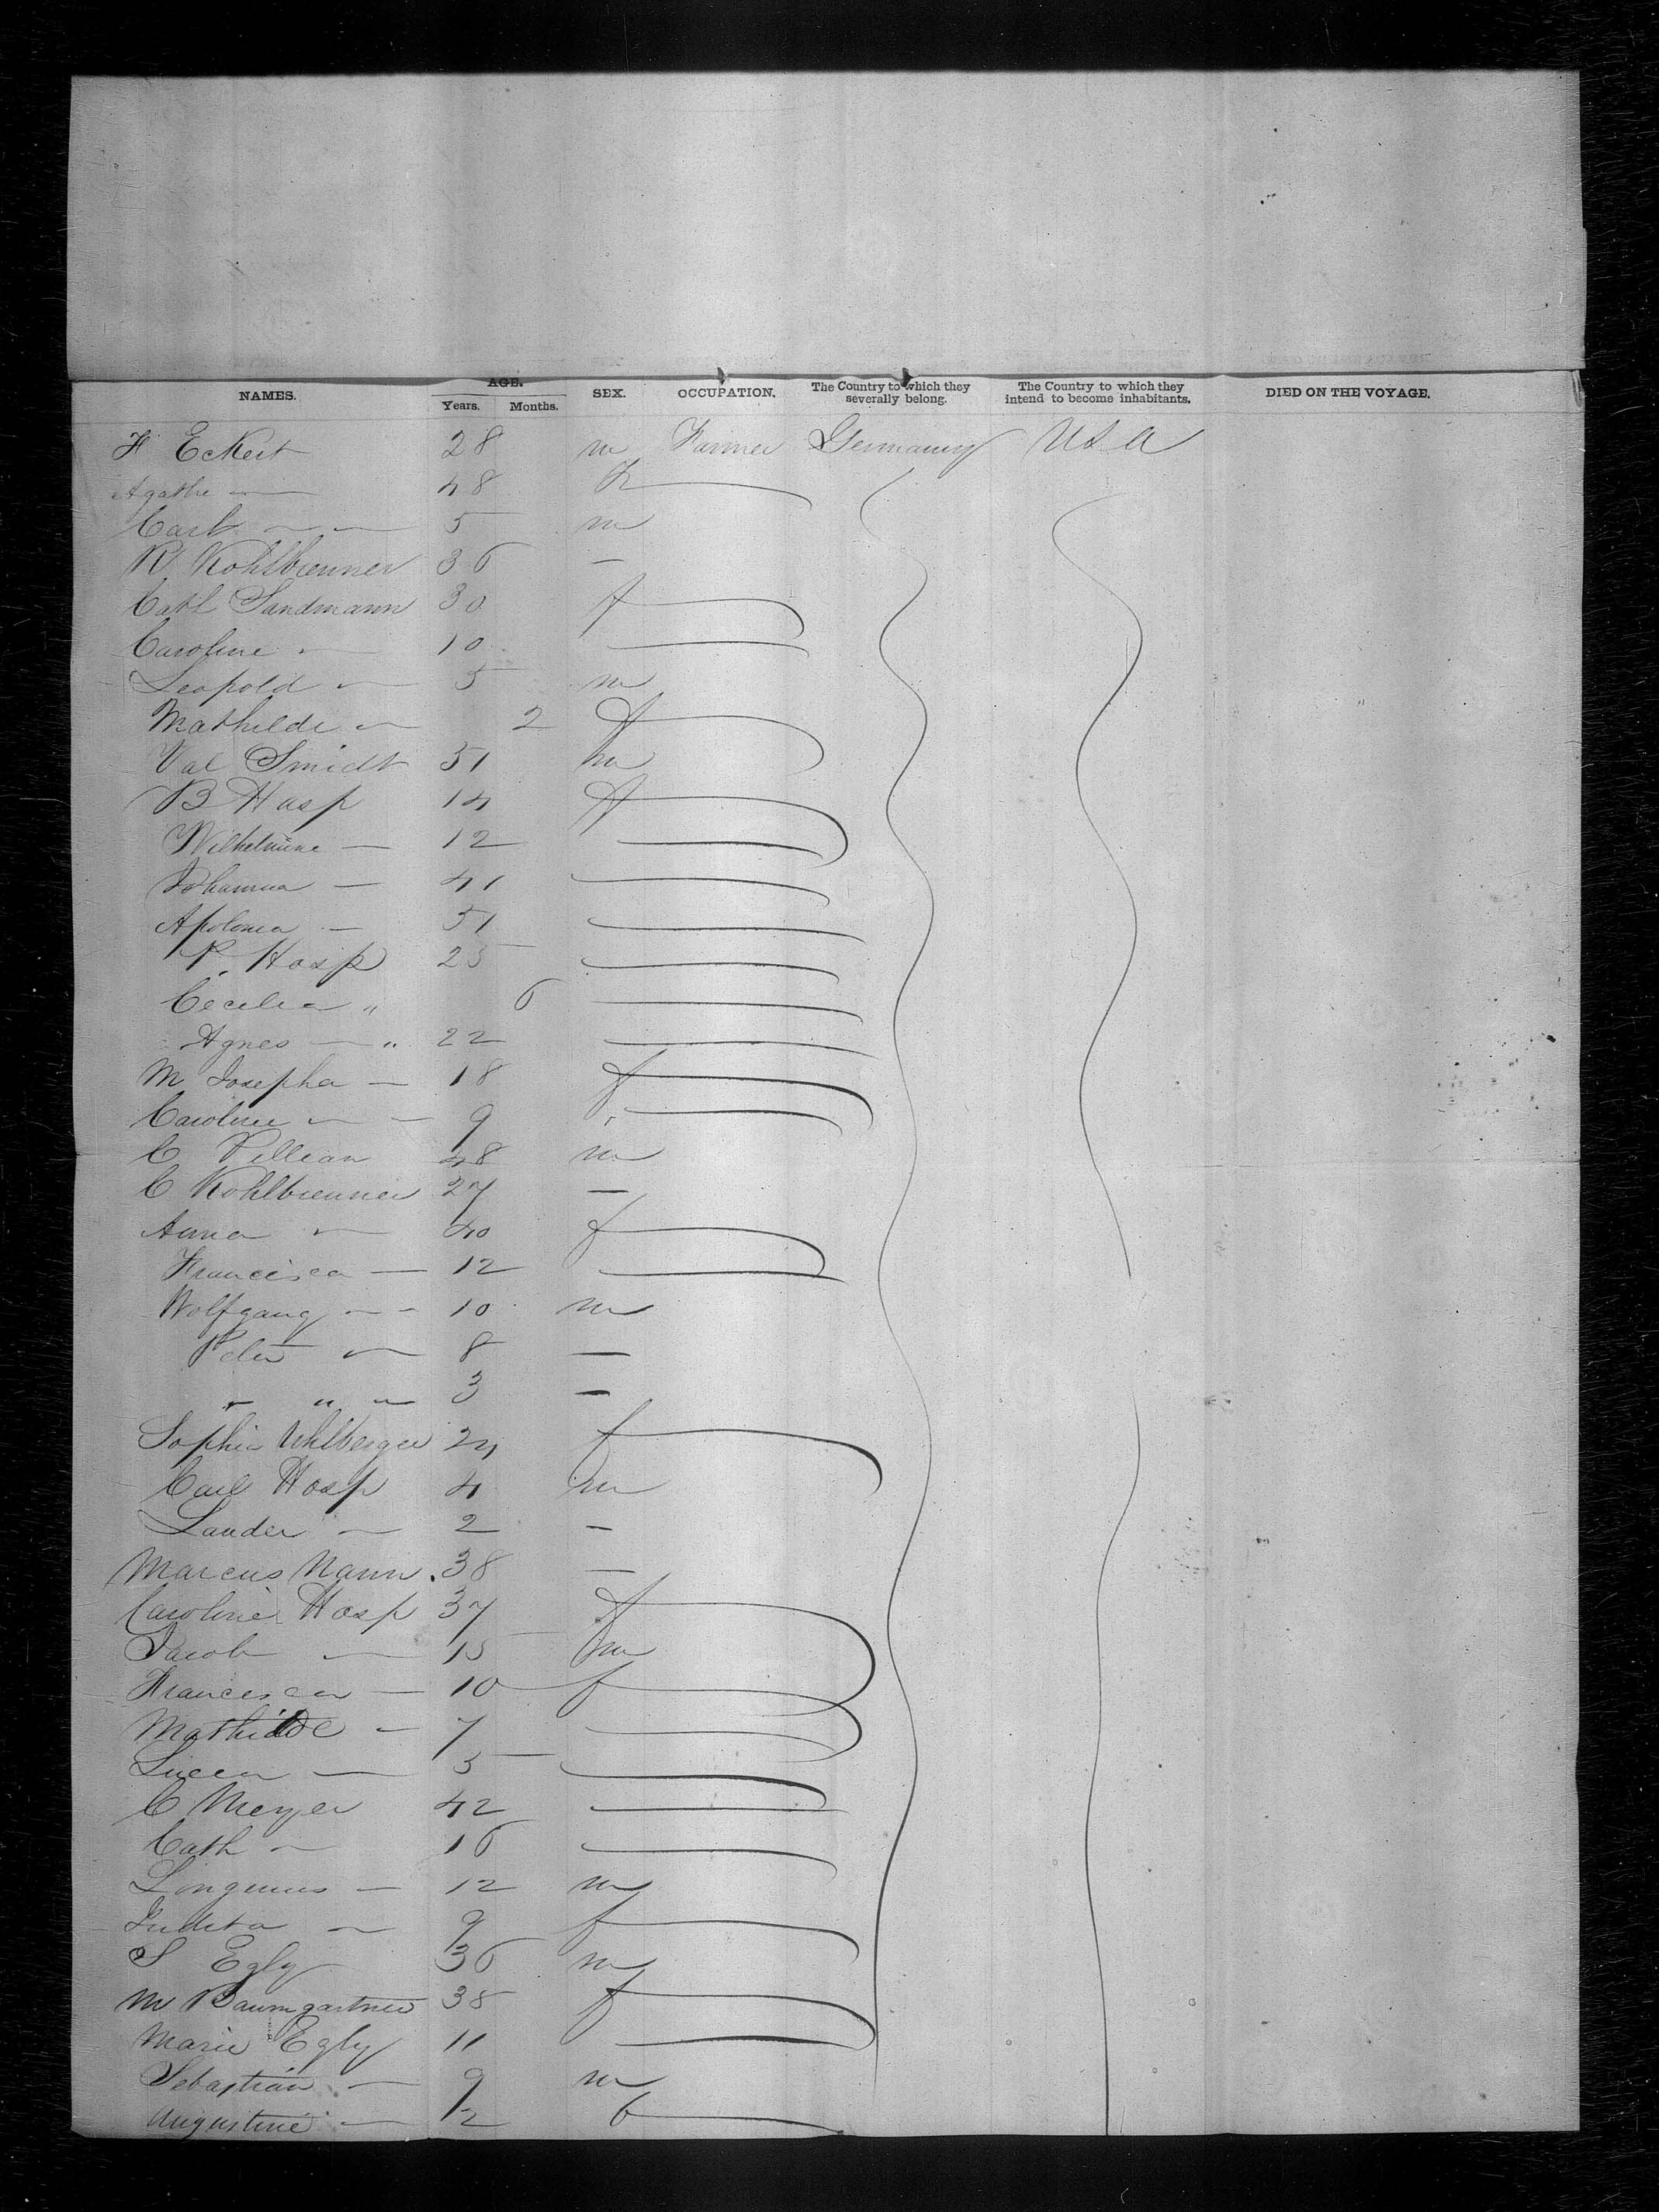 NAMES. AGE. SEX. OCCUPATION. The Country to which they severally belong. The Country to which they intend to become inhabitants. DIED ON THE VOYAGE.
Years. Months.
F Eckert 28 m Farmer Germany USA
Agathe — 48 f
Carl — — 5 m
R Kohlbrenner 36 —
Cath Sandmann 30 f
Caroline — 10 —
Leopold — 5 m
Mathilde — 2 f
Val Smidt 51 m
B Hasp 14 f
Wilhelmine — 12 —
Johanna — 41 —
Apolonia — 51 —
P. Hosp 25 —
Cecilia " 6 —
Agnes — " 22 —
M Josepha — 18 f
Caroline — — 9 —
C 48 m
C Kohlbrenner 27 —
Anna — 40 f
Francisca — 12 —
Wolfgang — - 10 m
Peter — 8 —
" " — 3 —
Sophia Uhlberger 24 f
Carl Hosp 4 m
Lander — 2 —
Marcus Nann. 38 —
Caroline Hosp 37 f
Jacob — 15 m
Francisca — 10 f
Mathilde — 7 —
— 5 —
C Meyer 42 —
Cath — 16 —
Longinus — 12 m
Judita — 9 f
S Egly 36 m
M Baumgartner 38 f
Marie Egly 11 —
Sebastian — 9 m
Augustine — 1/2 f